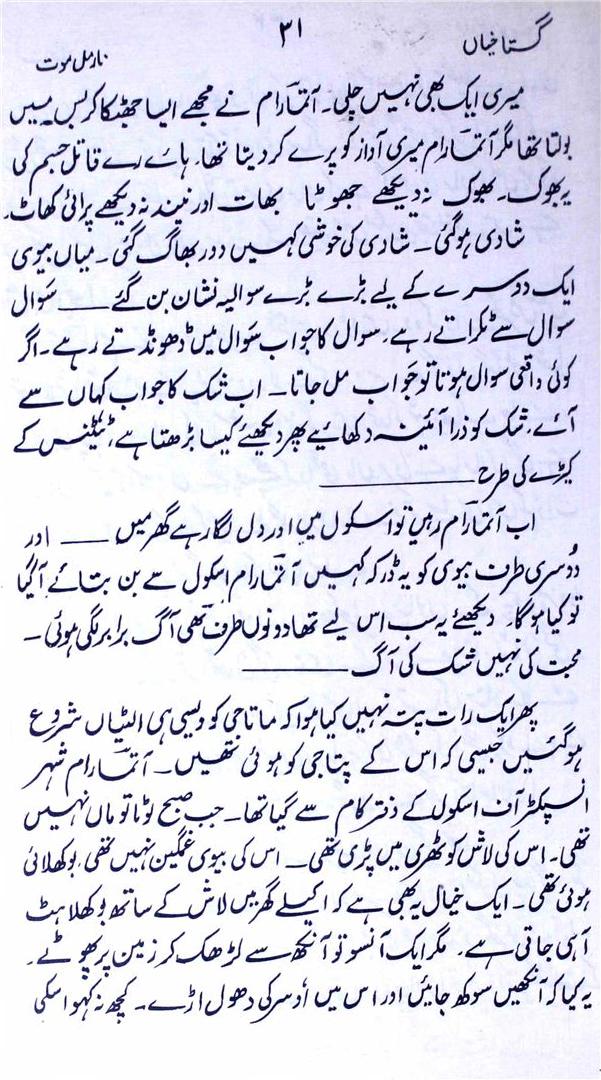 گستاخیاں
۳۱
نارمل موت
میری ایک بھی نہیں چلی۔ آتما رام نے مجھے ایسا جھٹکا کر بس میں
بولتا تھا مگر آتما رام میری آواز کو پرے کر دیتا تھا۔ ہائے رے قاتل جسم کی
یہ بھوک۔ بھوک نہ دیکھے جھوٹا بھات اور نیند نہ دیکھے پرائی کھاٹ۔
شادی ہو گئی۔ شادی کی خوشی کہیں دور بھاگ گئی۔ میاں بیوی
ایک دوسرے کے لیے بڑے بڑے سوالیہ نشان بن گئے ـــــ سوال
سوال سے ٹکراتے رہے۔ سوال کا جواب سوال میں ڈھونڈتے رہے۔ اگر
کوئی واقعی سوال ہوتا تو جواب مل جاتا۔ اب شک کا جواب کہاں سے
آئے۔ شک کو ذرا آئینہ دکھائیے پھر دیکھئے کیسا بڑھتا ہے، ٹیٹنس کے
کیڑے کی طرح ـــــــــــ
اب آتما رام رہیں تو اسکول میں اور دل لگا رہے گھر میں ـــــ اور
دوسری طرف بیوی کو یہ ڈر کہ کہیں آتما رام اسکول سے بن بتائے آ گیا
تو کیا ہو گا۔ دیکھئے یہ سب اس لیے تھا دونوں طرف تھی آگ برابر لگی ہوئی۔
محبت کی نہیں شک کی آگ ـــــــــــ
پھر ایک رات پتہ نہیں کیا ہوا کہ ماتا جی کو ویسی ہی الٹیاں شروع
ہو گئیں جیسی کہ اس کے پتا جی کو ہوئی تھیں۔ آتما رام شہر
انسپکٹر آف اسکول کے دفتر کام سے گیا تھا۔ جب صبح لوٹا تو ماں نہیں
تھی۔ اس کی لاش کوٹھری میں پڑی تھی۔ اس کی بیوی غمگین نہیں تھی، بوکھلائی
ہوئی تھی۔ ایک خیال یہ بھی ہے کہ اکیلے گھر میں لاش کے ساتھ بوکھلاہٹ
آ ہی جاتی ہے۔ مگر ایک آنسو تو آنکھ سے لڑھک کر زمین پر پھوٹے۔
یہ کیا کہ آنکھیں سوکھ جائیں اور اس میں اُوسر کی دھول اڑے۔ کچھ نہ کہو اسکی